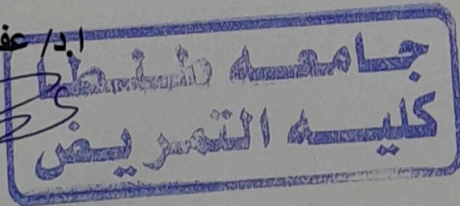 ا.د/ عف
جامعه طنطا
كليه التمريض